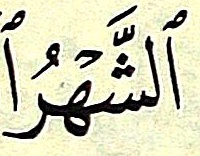 ٱلشَّهۡرُ ٱ